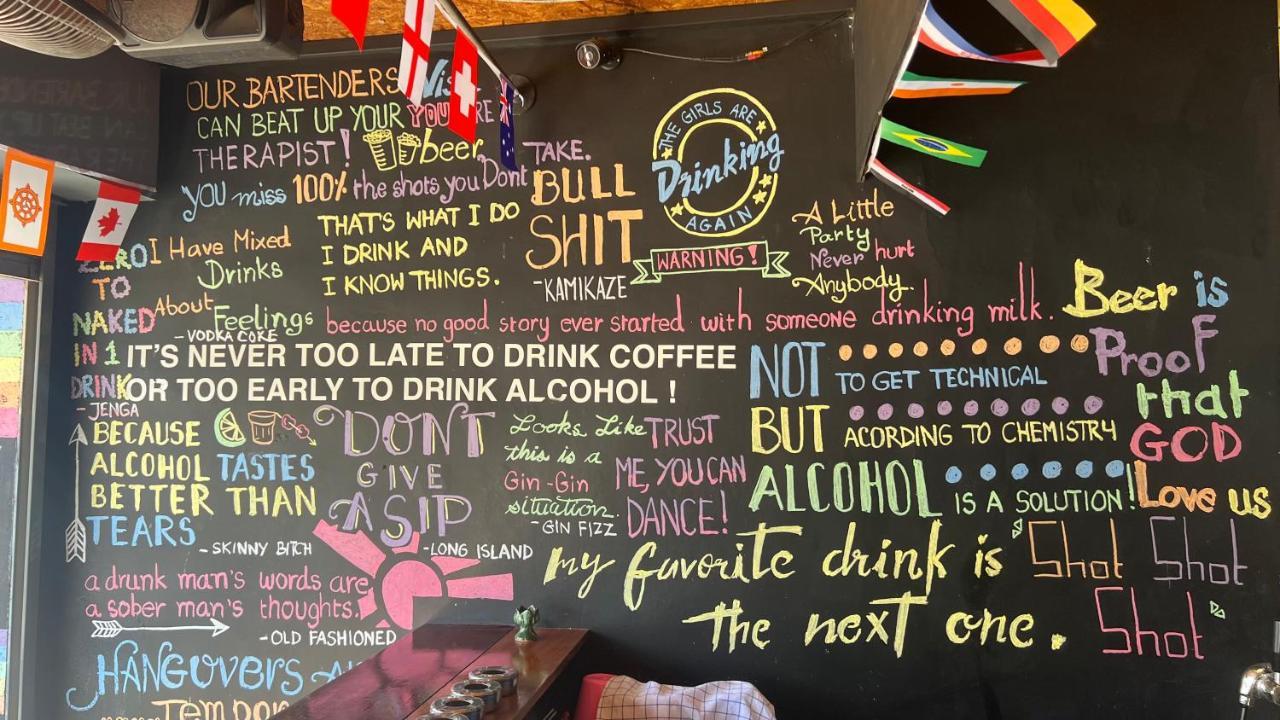 OUR BARTENDERS
CAN BEAT UP YOUR
THERAPIST!
beer
YOU miss 100% the shots you Dont
TAKE.
BULL
SHIT
-KAMIKAZE
THE GIRLS ARE
Drinking
AGAIN
WARNING!
A Little
Party
Never hurt
Anybody.
ZERO
TO
NAKED
IN 1
DRINK
- JENGA
I Have Mixed
Drinks
About
Feelings
- VODKA COKE
THAT'S WHAT I DO
I DRINK AND
I KNOW THINGS.
because no good story ever started with someone drinking milk.
IT'S NEVER TOO LATE TO DRINK COFFEE
OR TOO EARLY TO DRINK ALCOHOL !
BECAUSE
ALCOHOL TASTES
BETTER THAN
TEARS
- SKINNY BITCH
DON'T
GIVE
A SIP
-LONG ISLAND
Looks Like
this is a
Gin-Gin
situation.
-GIN FIZZ
TRUST
ME, YOU CAN
DANCE!
NOT
TO GET TECHNICAL
BUT ACORDING TO CHEMISTRY
ALCOHOL IS A SOLUTION!
Beer is
Proof
that
GOD
Love us
a drunk man's words are
a sober man's thoughts.
-OLD FASHIONED
my favorite drink is
the next one.
Shot Shot
Shot
HANGOVERS